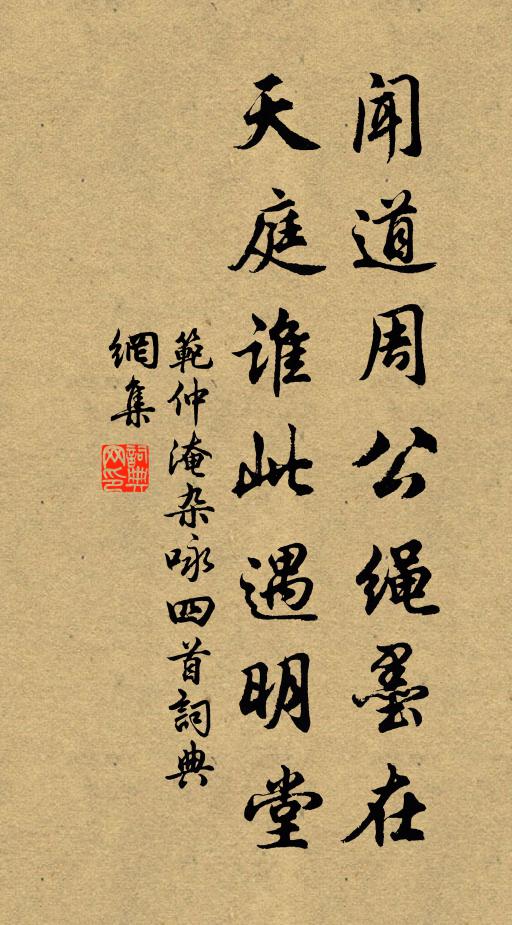 闻道周公绳墨在
天庭谁此遇明堂
範仲淹杂咏四首詞典
網集
詞典网印